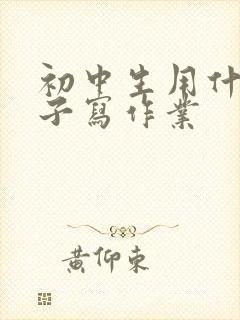 初中生用什
子寫作業
黃仰東